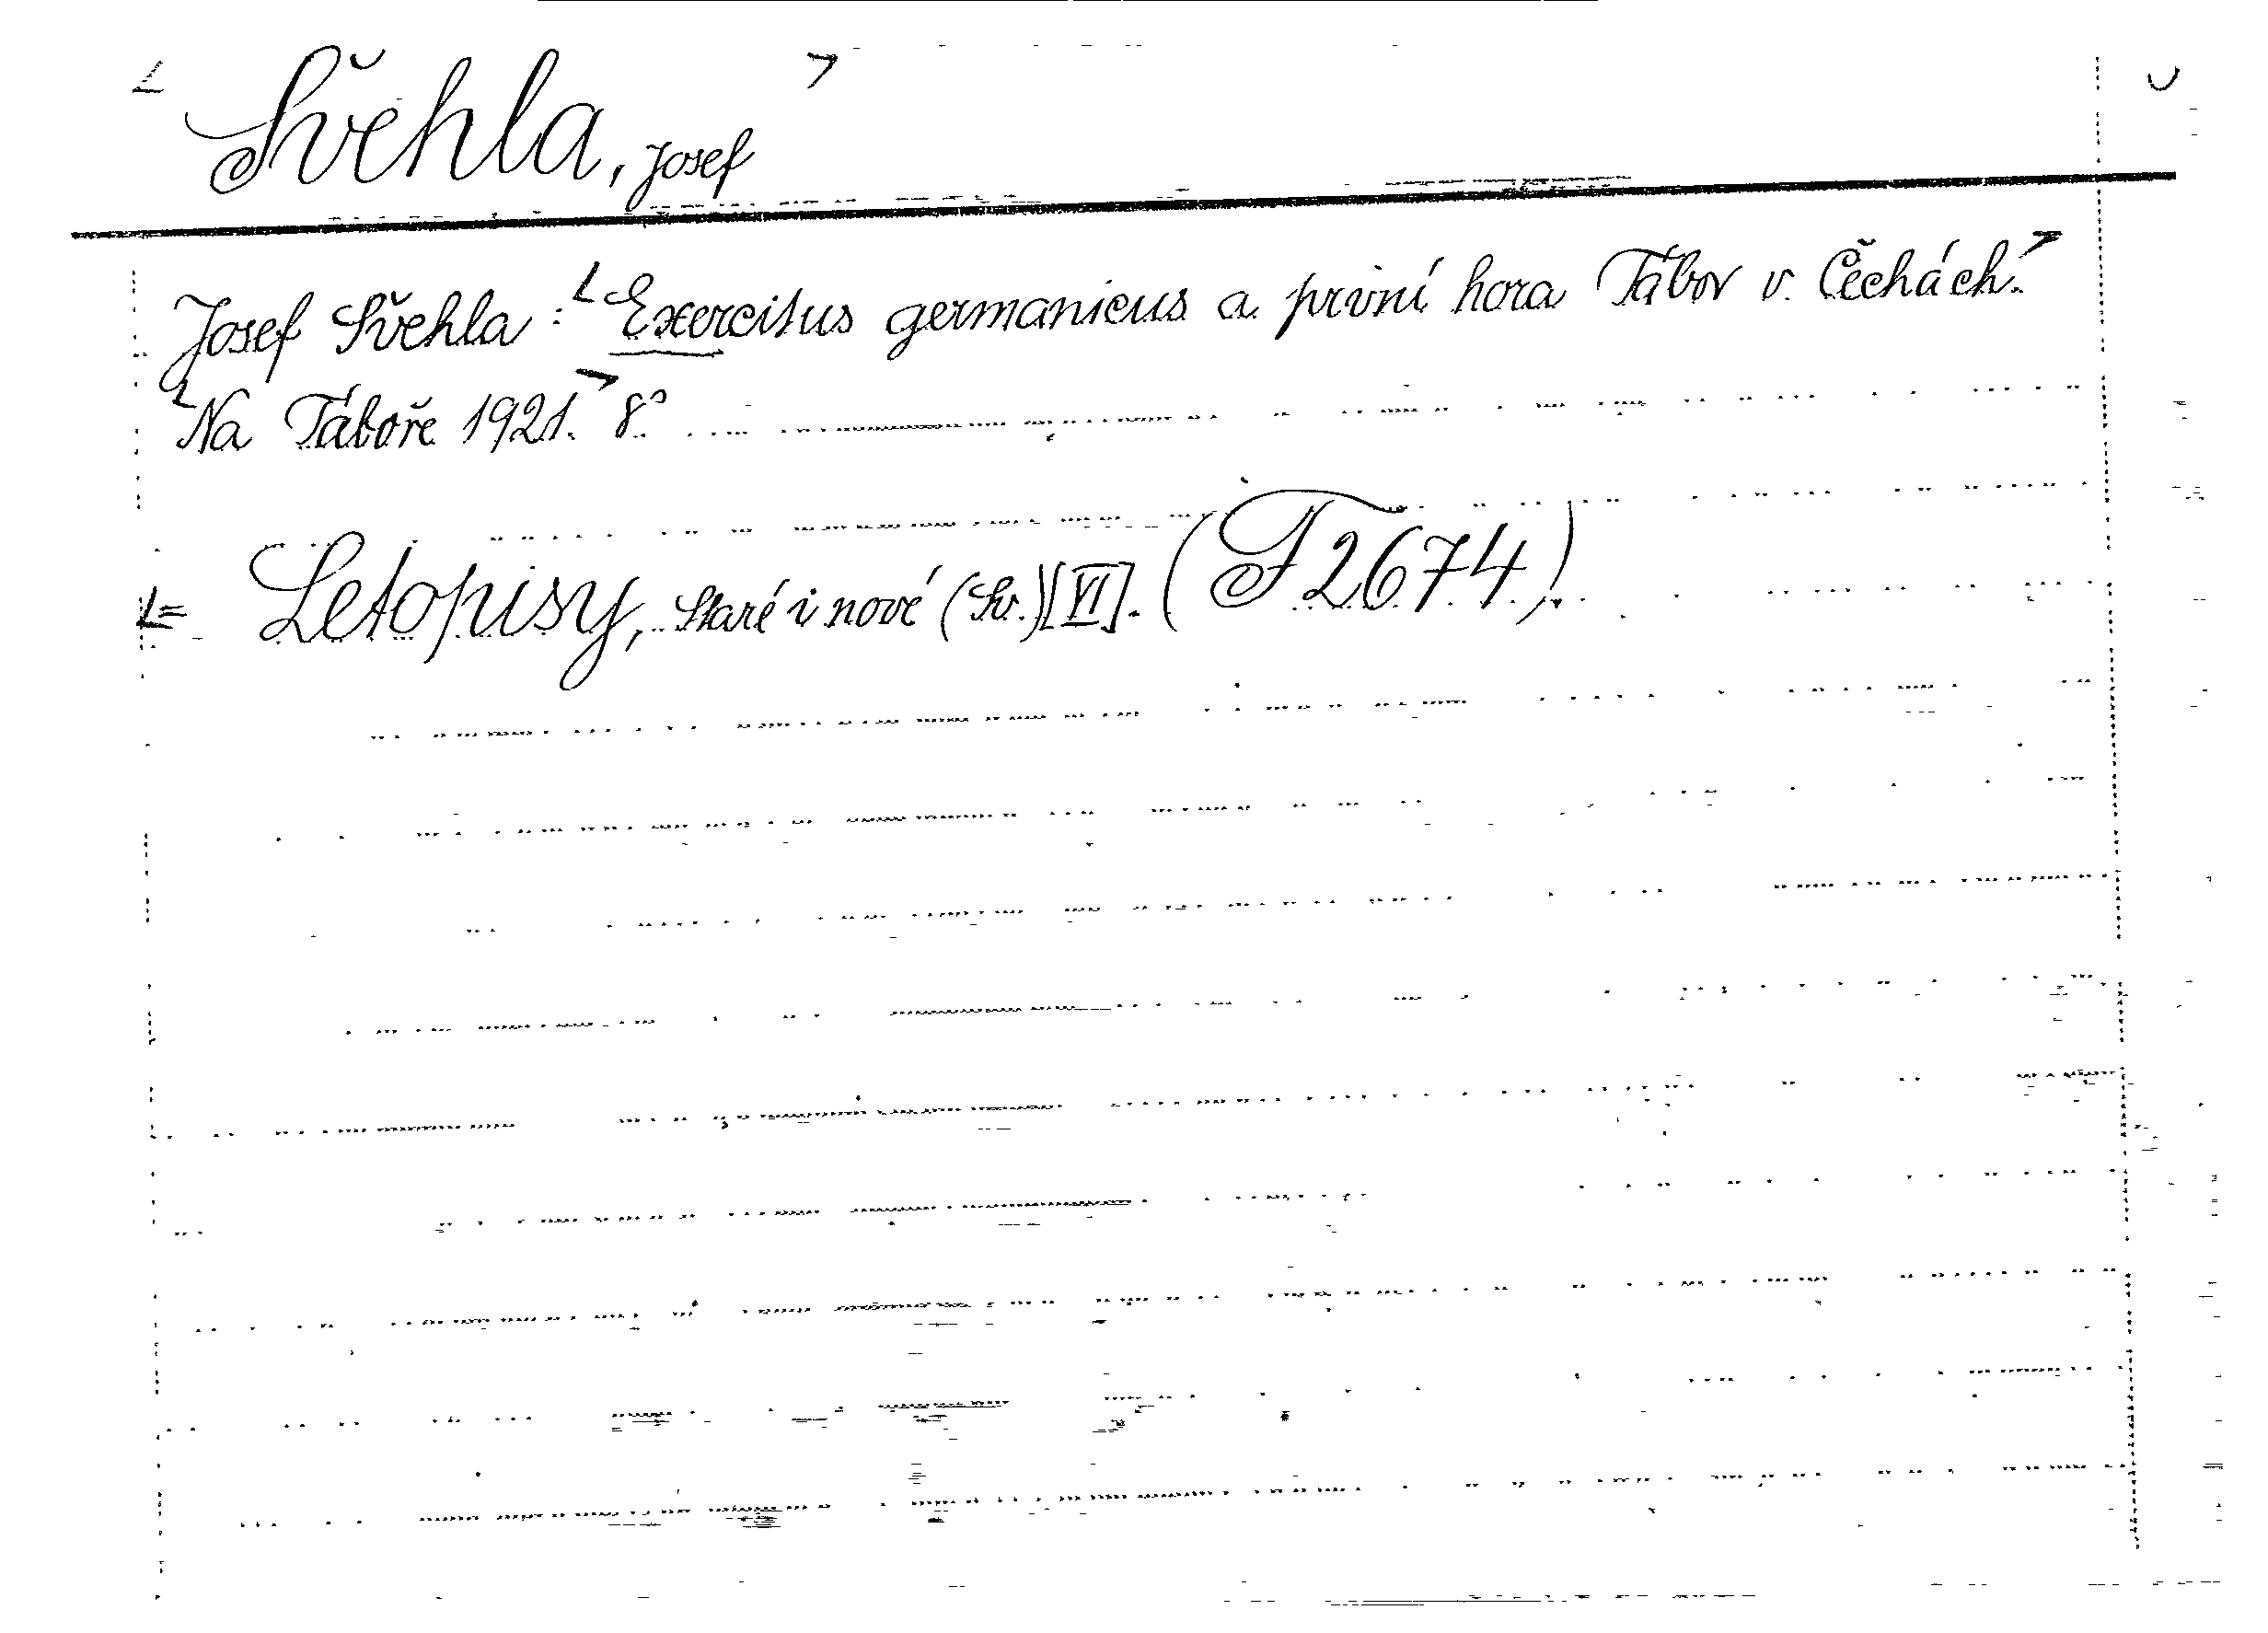 Švehla, Josef
Josef Švehla: Exercitus germanicus a první hora Tábor v Čechách.
Na Táboře 1921. 8°.
= Letopisy, staré i nové (Sv.) [VI]. (F 2674).